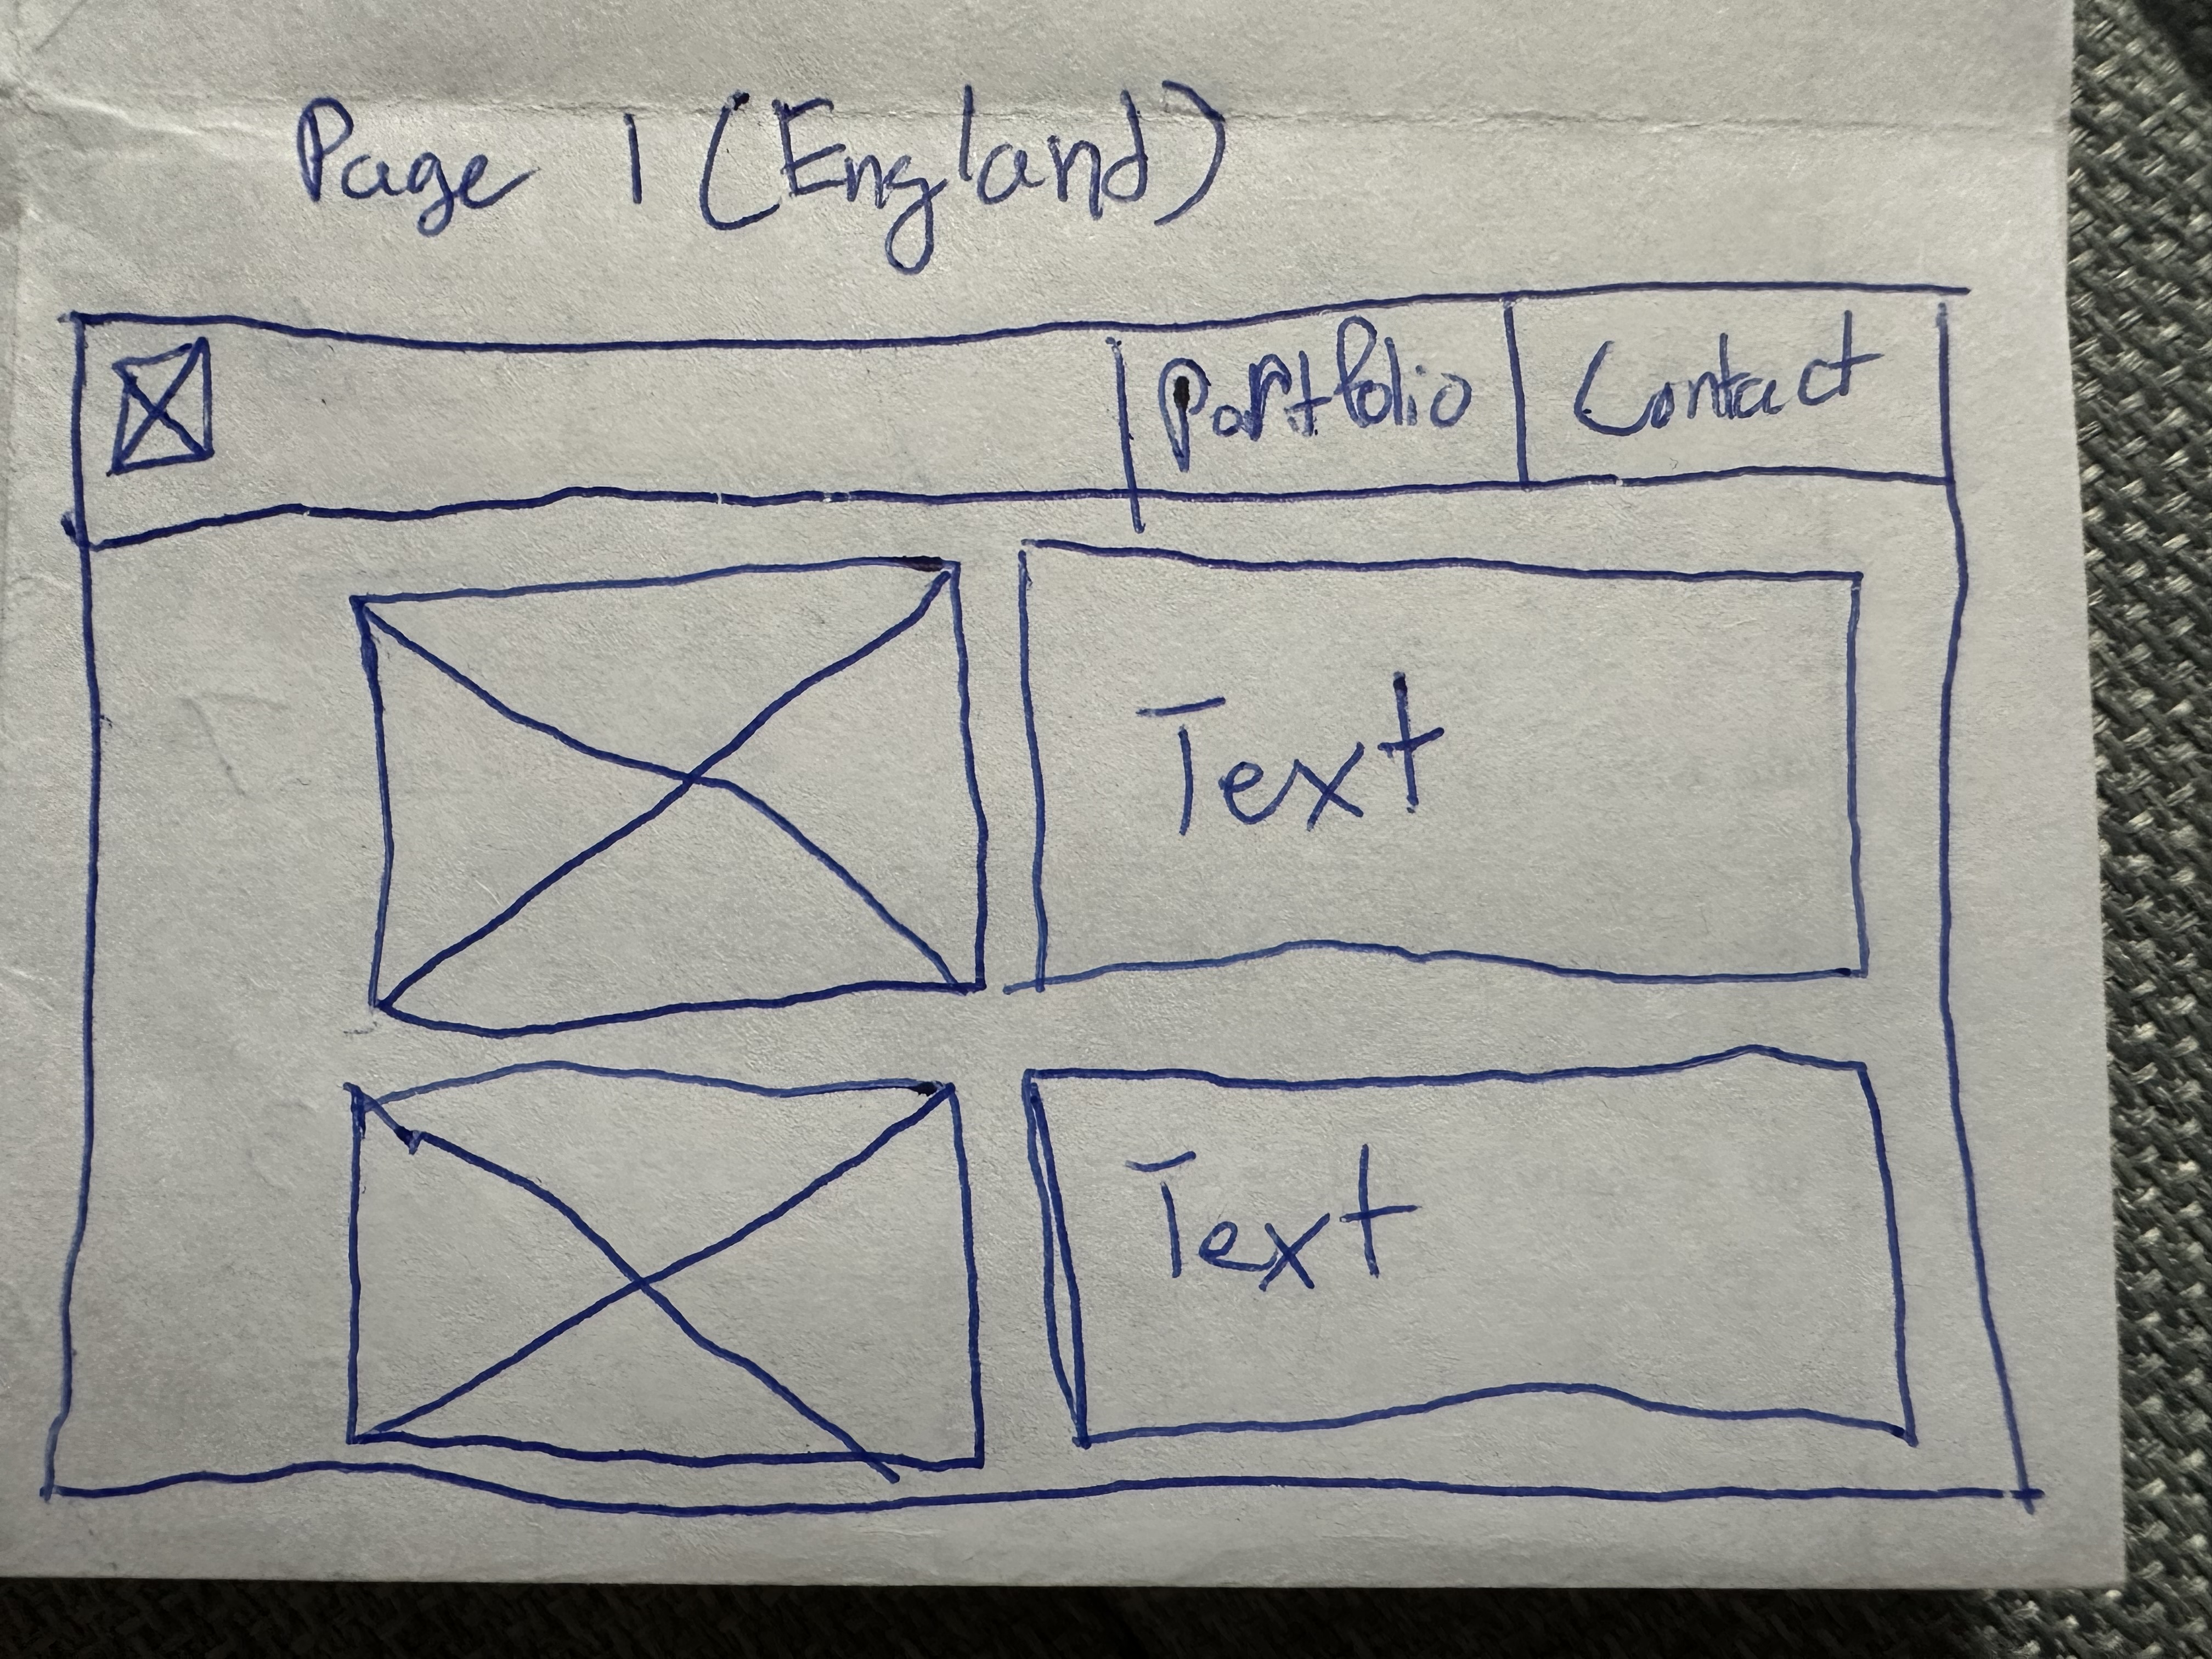 Page 1 (England)
Portfolio Contact
Text
Text